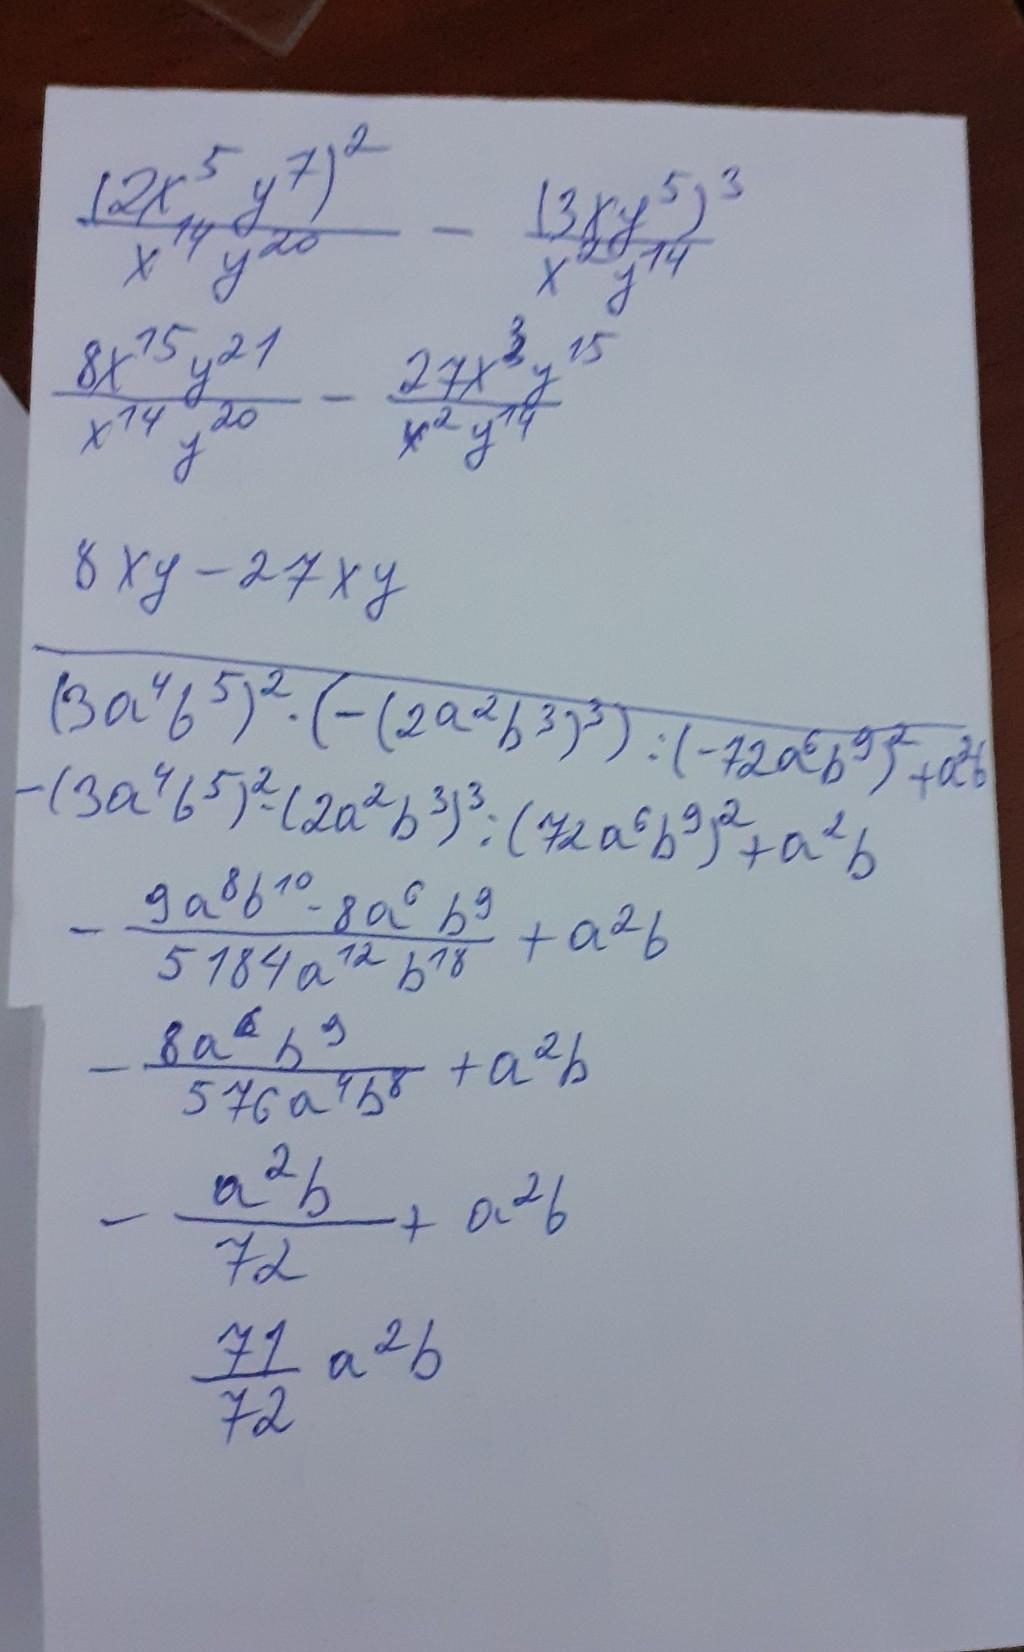 (2x⁵y⁷)²/x¹⁴y²⁰ - (3xy⁵)³/x²y¹⁴
8x¹⁵y²¹/x¹⁴y²⁰ - 27x³y¹⁵/x²y¹⁴
8xy - 27xy
(3a⁴b⁵)² · (-(2a²b³)³) : (-72a⁶b⁹)² + a²b
-(3a⁴b⁵)² · (2a²b³)³ : (72a⁶b⁹)² + a²b
- 9a⁸b¹⁰ · 8a⁶b⁹/5184a¹²b¹⁸ + a²b
- 8a⁶b⁹/576a⁴b⁸ + a²b
- a²b/72 + a²b
71/72 a²b